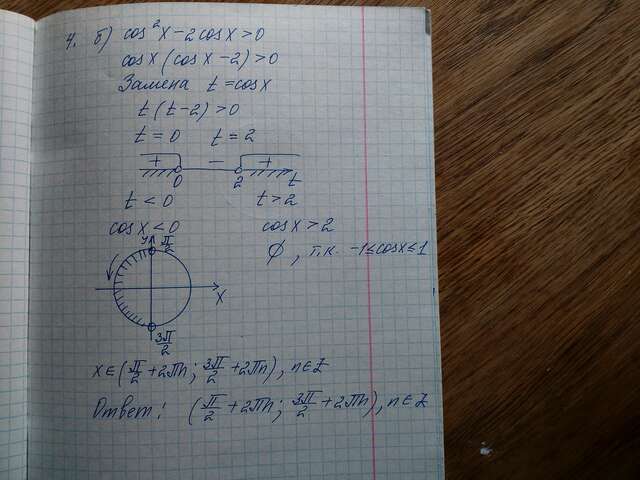 4. б) cos²x − 2cosx > 0
cosx (cosx − 2) > 0
Замена t = cosx
t (t − 2) > 0
t = 0 t = 2
+ − +
0 2 t
t < 0 t > 2
cosx < 0 cosx > 2
∅, т.к. −1 ≤ cosx ≤ 1
y π/2
x
3π/2
x ∈ (π/2 + 2πn; 3π/2 + 2πn), n ∈ Z
Ответ: (π/2 + 2πn; 3π/2 + 2πn), n ∈ Z